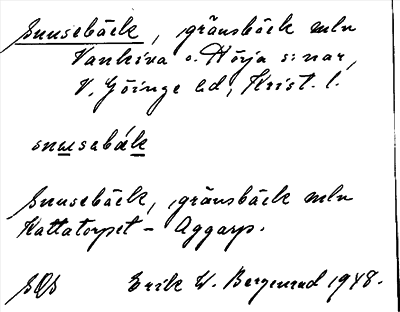 Snusebäck, gränsbäck mln
Vankiva o. Nörja s:nar,
V. Göinge hd, Krist. l.
snusabäk
Snusebäck, gränsbäck mln
Kattatorpet - Aggarp.
Erik W. Bergenrud 1948.